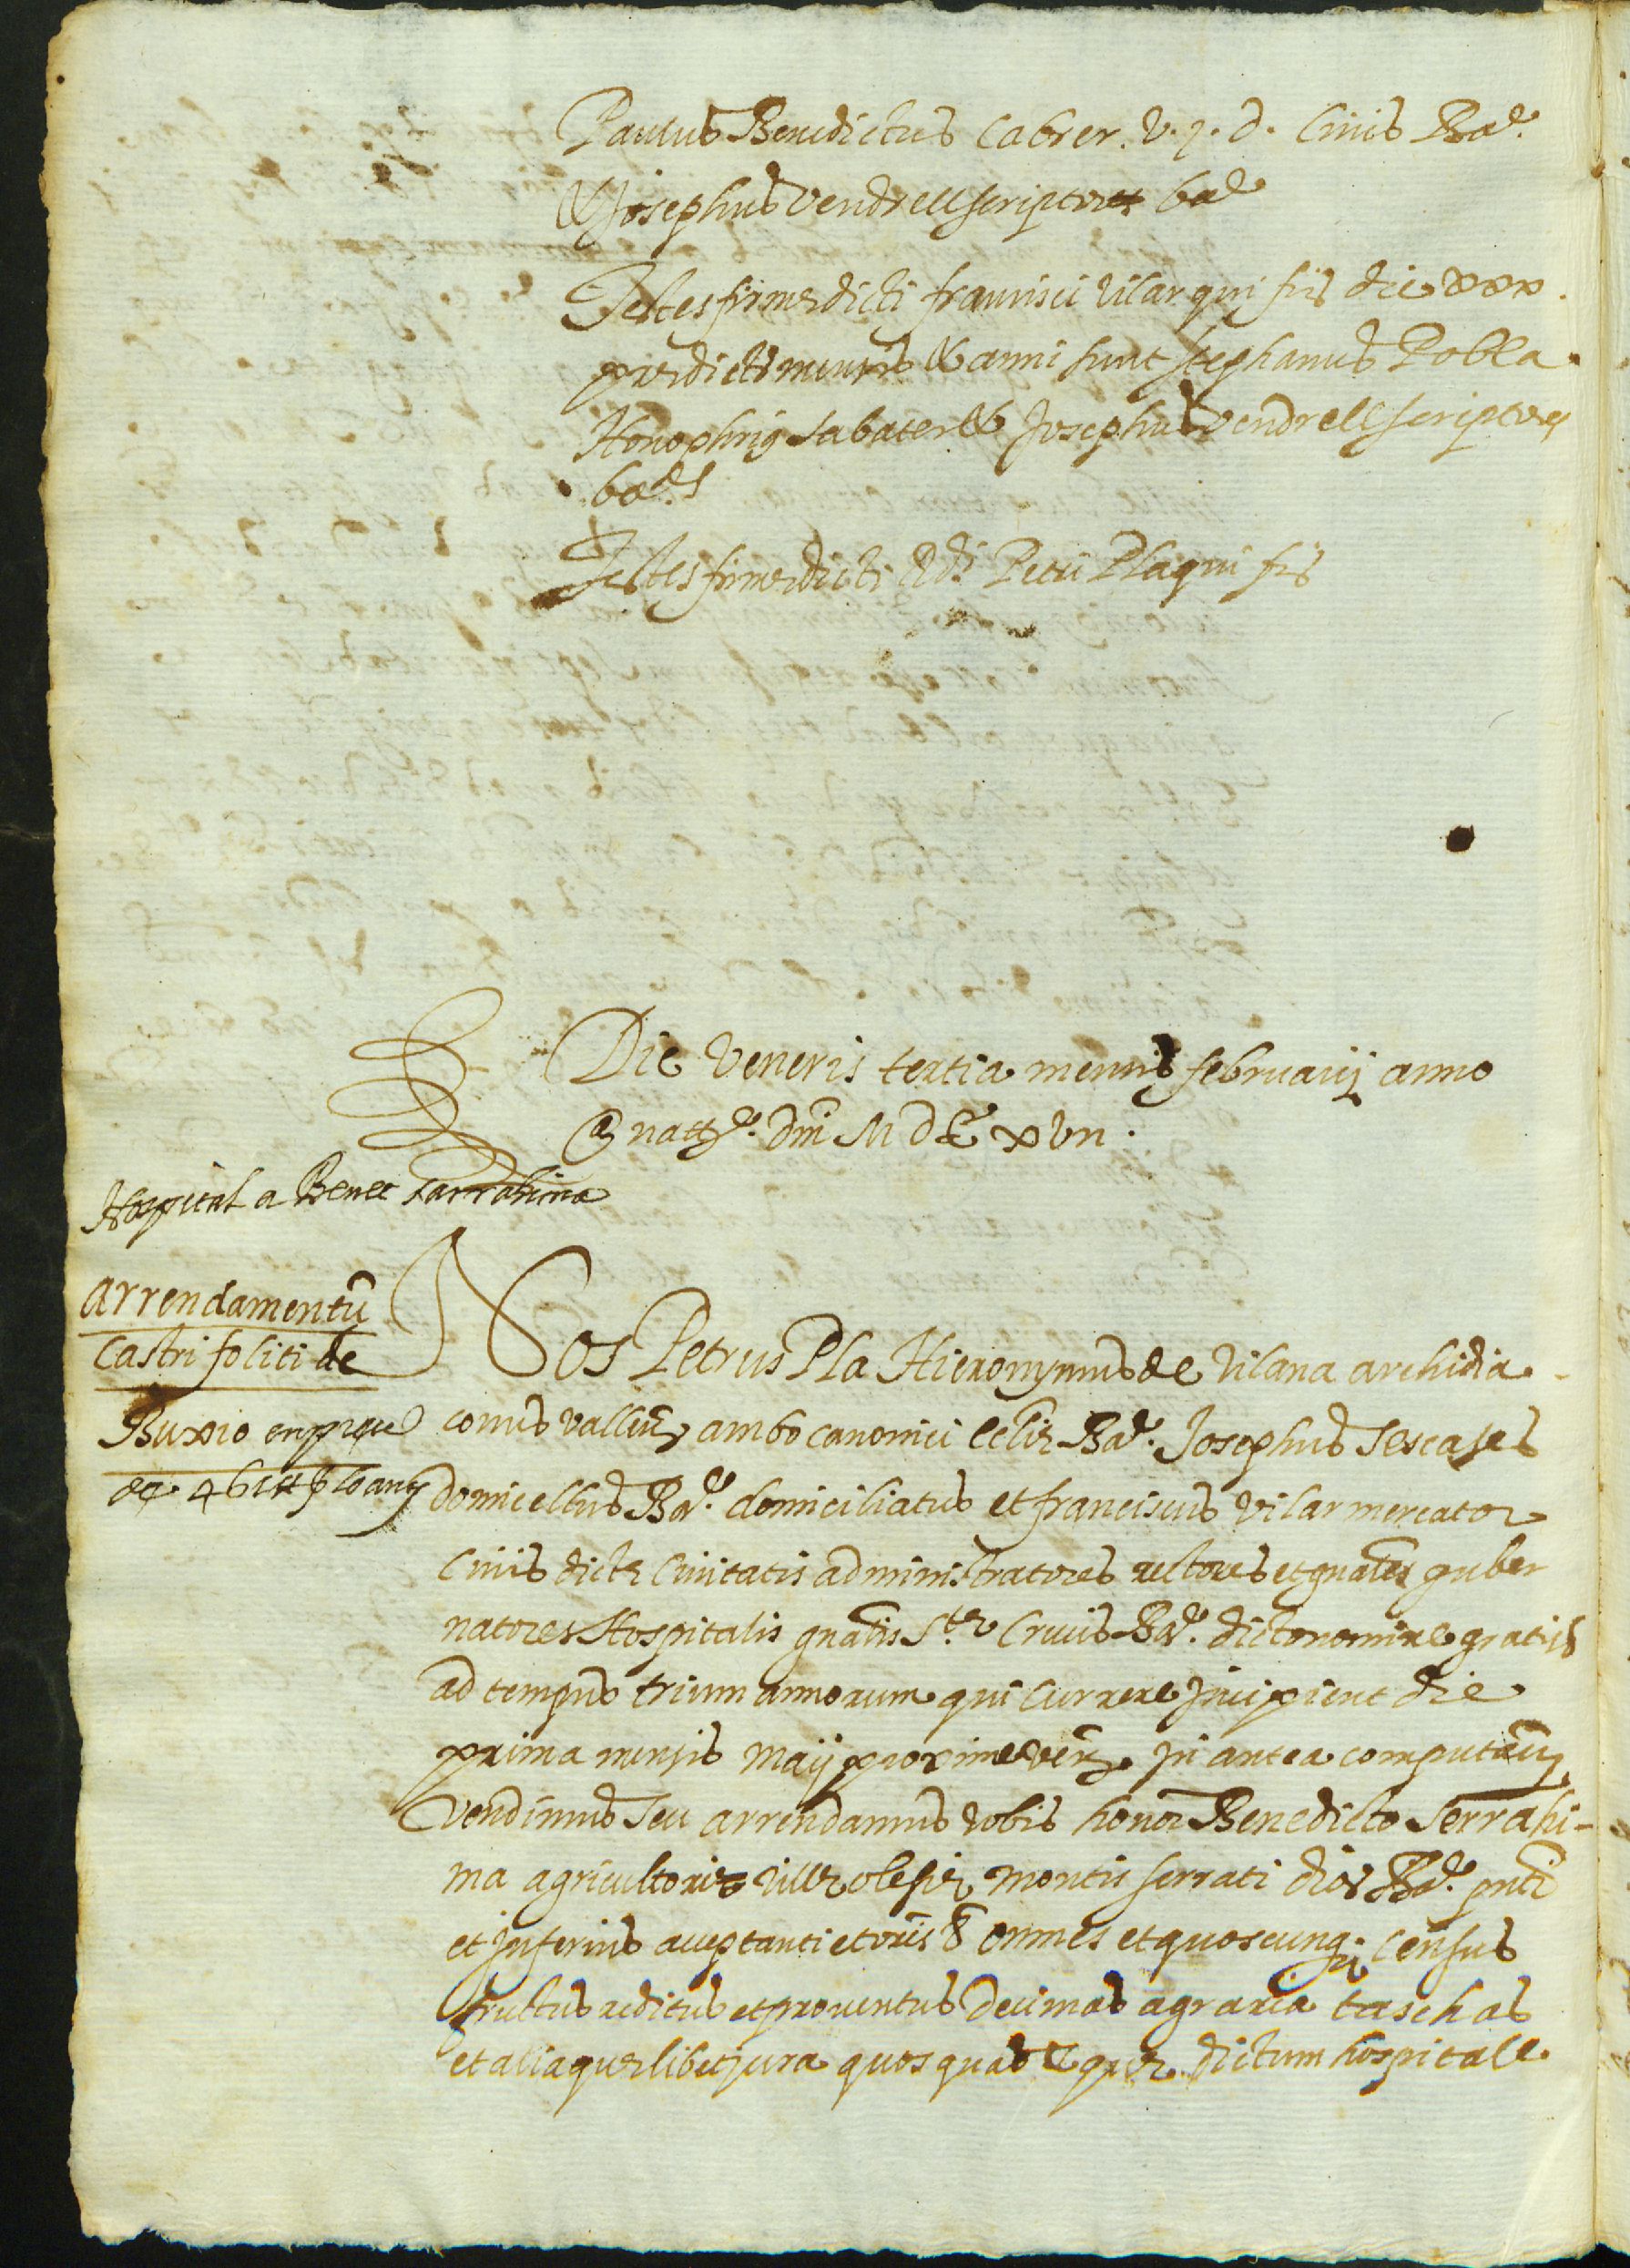 Paulus Benedictus Cabrer. V. J. d. Civis Bar.
& Josephus Vendrell scriptores bar
Testes firmæ dicti francisci Vilar qui fir. die xxx.
prædicti mensis & anni sunt stephanus Pobla
Honophrius Sabater & Josephus Vendrell scriptores
bar.
Testes firmæ dicti Petri Pla qui fir.
Die Veneris tertia mensis februarij anno
a natt.e dñi M D C xvij.
Hospital a Benet Sarrahima
arrendamentū
Castri foliti de
Buxio en preu
de 461 ₶ lo any
Nos Petrus Pla Hieronymus de Vilana archidia
conus vallen. ambo canonici eccliæ Bar. Josephus Sescases
domicellus Bar. domiciliatus et franciscus Vilar mercator
Civis dictæ Civitatis administratores rectores et gñales guber
natores Hospitalis gñalis S.tæ Crucis Bar. dicto nomine gratis
ad tempus trium annorum qui currere Jncipient die
prima mensis Maij proxime ven. in antea computan.
vendimus seu arrendamus vobis honor Benedicto Serrahi-
ma agricultori villæ olesiæ montis serrati dioc. Bar. pñti
et Jnferius acceptanti et omnes et quoscunq; Census
fructus reditus et proventus decimas agraria taschas
et alia quælibet jura quos quas & quæ dictum hospitale